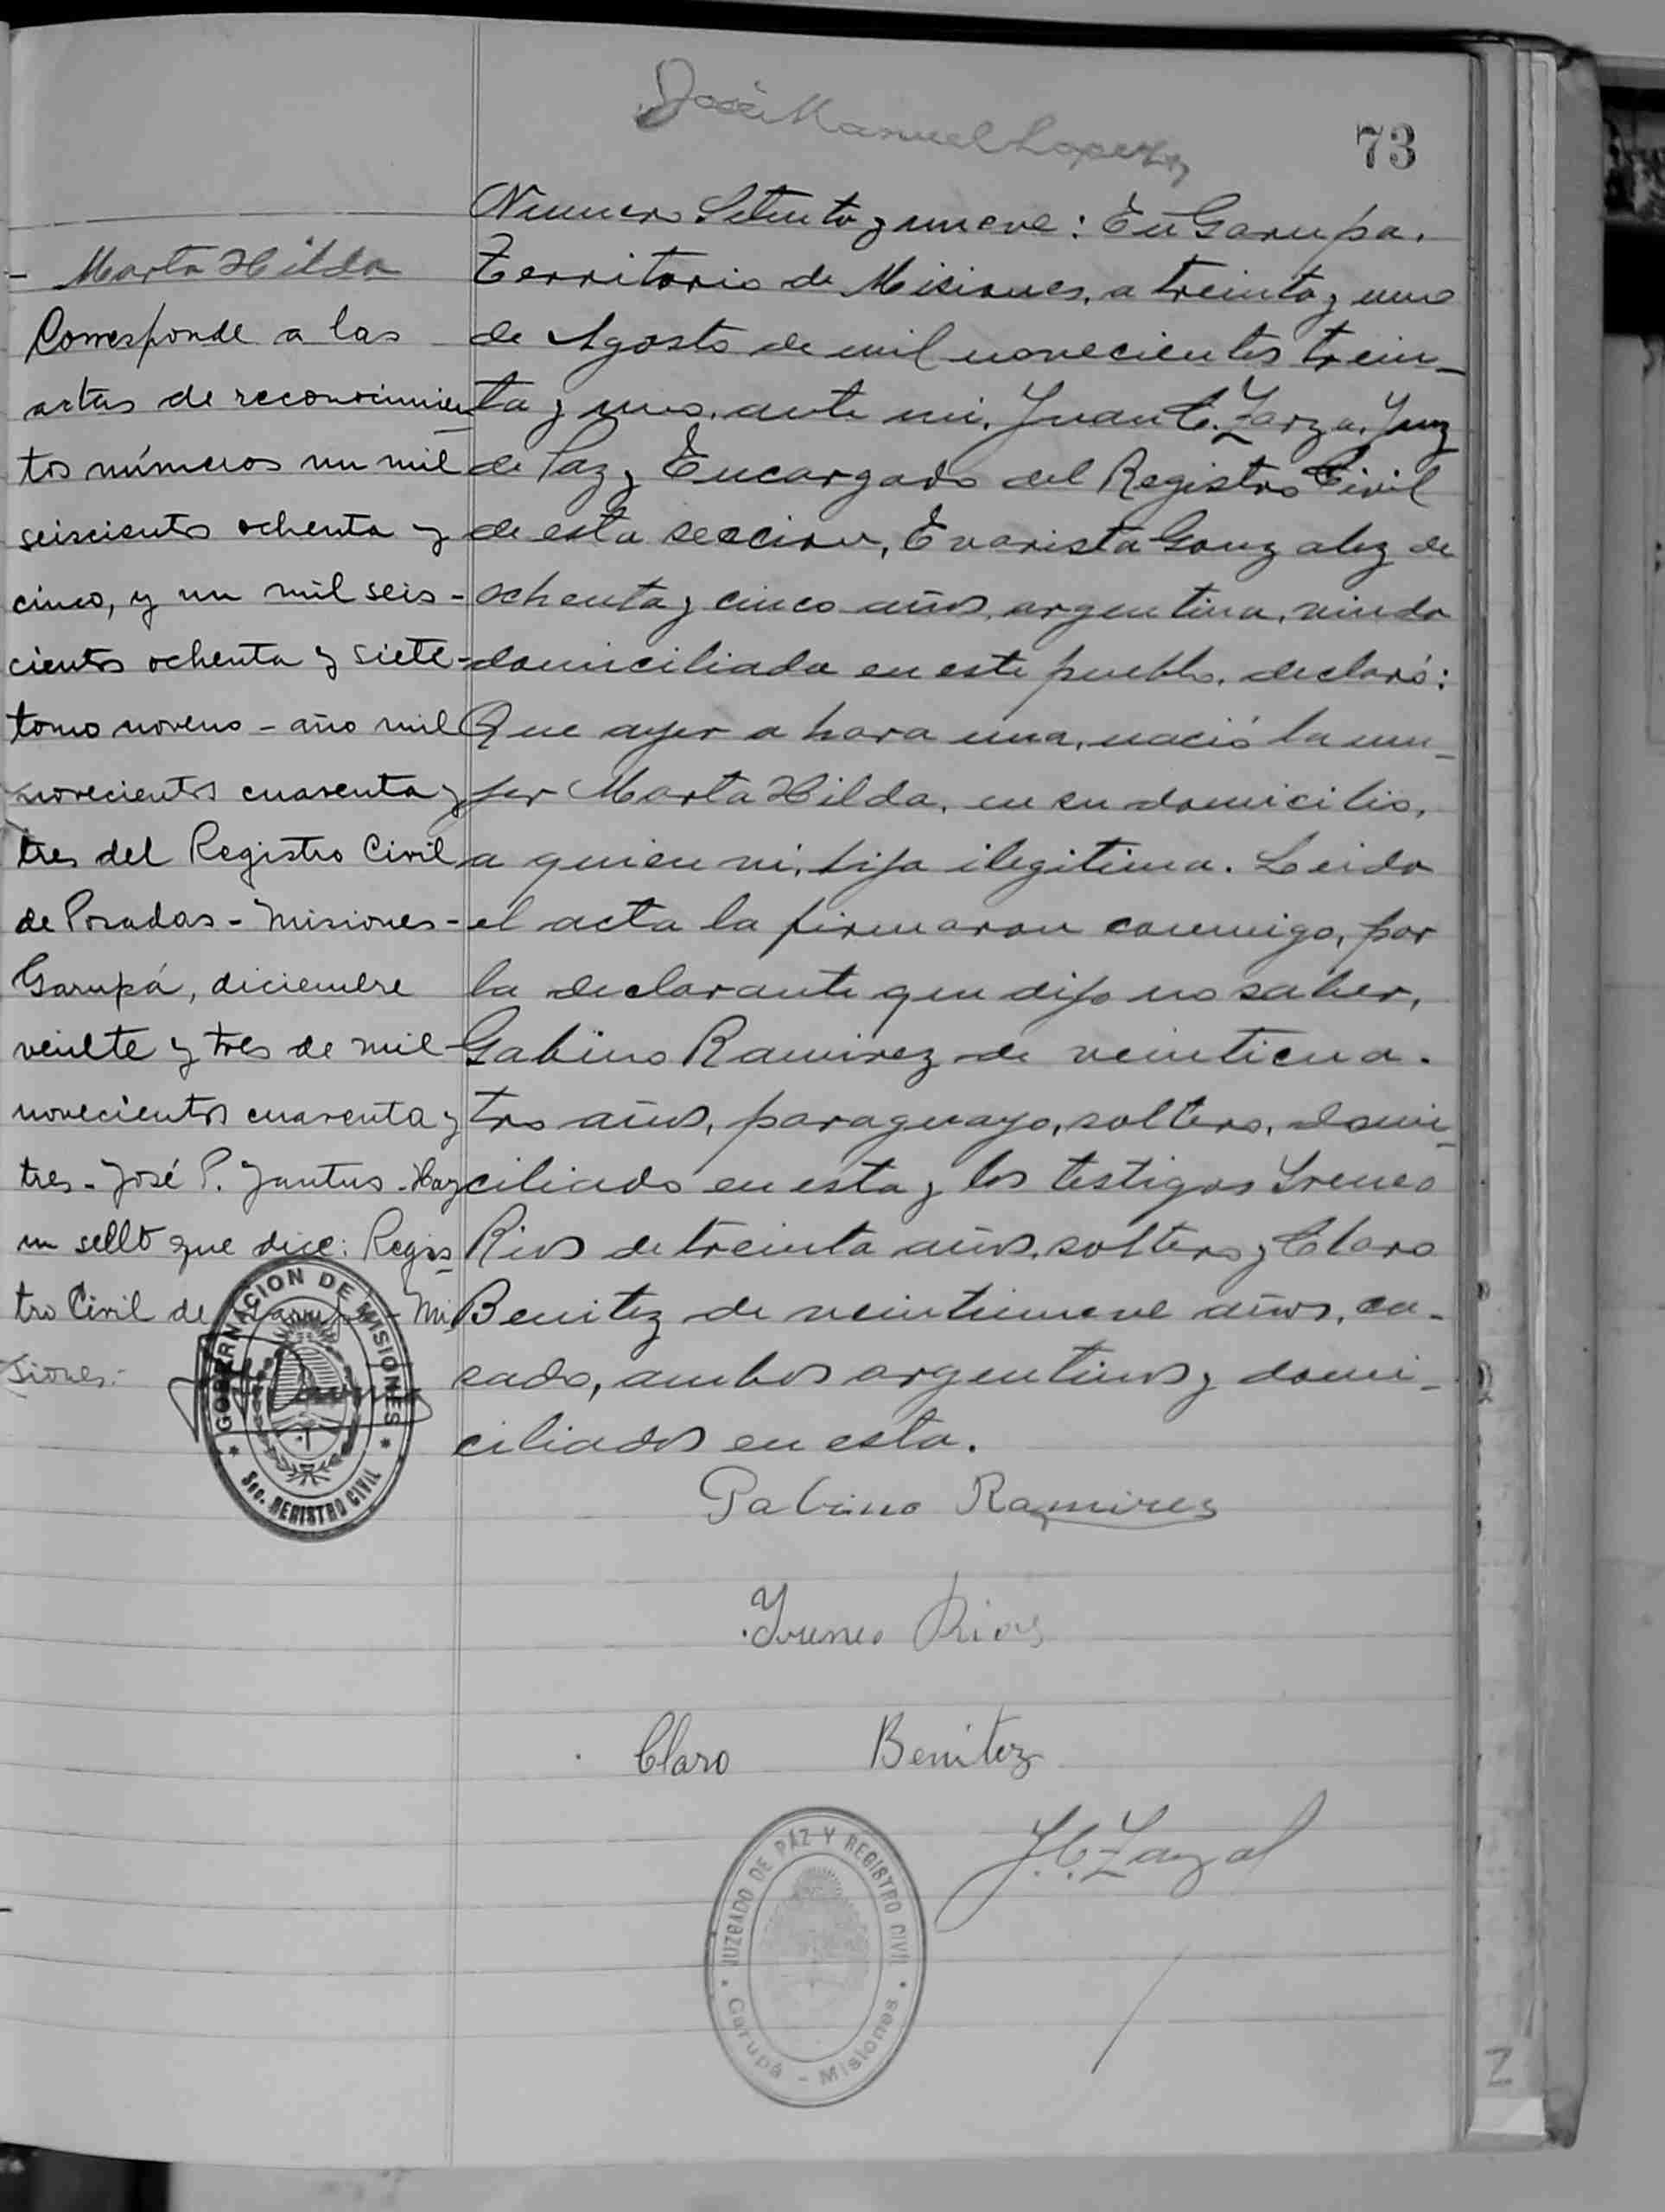 José Manuel Lopez
73
Numero Setenta y nueve: En Garupa.
Territorio de Misiones, a treinta y uno
de Agosto de mil novecientos trein-
ta y uno, ante mi, Juan C. Zarza, Juez
de Paz y Encargado del Registro Civil
de esta seccion, Evarista Gonzalez de
ochenta y cinco años, argentina, viuda
domiciliada en este pueblo, declaró:
Que ayer a hora una, nació la mu-
jer Marta Hilda, en su domicilio,
a quien vi, hija ilegitima. Leida
el acta la firmaron conmigo, por
la declarante que dijo no saber,
Gabino Ramirez de veinticua-
tro años, paraguayo, soltero, domi-
ciliado en esta y los testigos Yreneo
Rios de treinta años, soltero y Claro
Benitez de veintinueve años, ca-
sado, ambos argentinos y domi-
ciliados en esta.
Gabino Ramirez
Yreneo Rios
Claro Benitez
J. C. Zarza
JUZGADO DE PAZ Y REGISTRO CIVIL
Garupá - Misiones
Marta Hilda
Corresponde a las
actas de reconocimien-
tos números un mil
seiscientos ochenta y
cinco, y un mil seis-
cientos ochenta y siete-
tomo noveno - año mil
novecientos cuarenta y
tres del Registro Civil
de Posadas - Misiones -
Garupá, diciembre
veinte y tres de mil
novecientos cuarenta y
tres - José P. Jantus - Hay
un sello que dice: Regis-
tro Civil de Garupá - Mi
siones.-
GOBERNACION DE MISIONES
Sec. REGISTRO CIVIL
Z